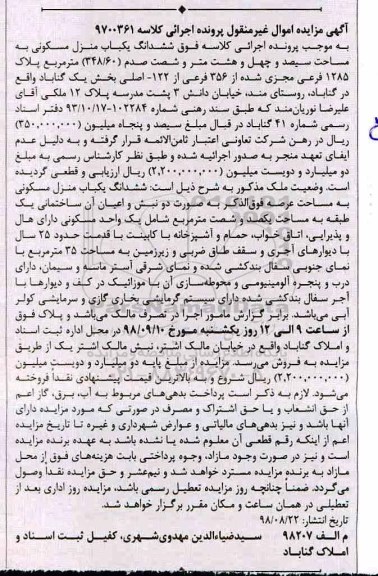 آگهی مزایده اموال غیرمنقول پرونده اجرائی کلاسه ۹۷۰۰۳۶۱
به موجب پرونده اجرائی کلاسه فوق ششدانگ یکباب منزل مسکونی به
مساحت سیصد و چهل و هشت متر و شصت صدم (۳۴۸/۶۰) مترمربع پلاک
۱۲۸۵ فرعی مجزی شده از ۳۵۶ فرعی از ۱۲۲- اصلی بخش یک گناباد واقع
در گناباد، روستای مند، خیابان دانش ۳ پشت مدرسه پلاک ۱۲ ملکی آقای
علیرضا نوریان‌مند که طبق سند رهنی شماره ۱۰۲۲۸۴-۹۳/۱۰/۱۷ دفتر اسناد
رسمی شماره ۴۱ گناباد در قبال مبلغ سیصد و پنجاه میلیون (۳۵۰,۰۰۰,۰۰۰)
ریال در رهن شرکت تعاونی اعتبار ثامن‌الائمه قرار گرفته و به دلیل عدم
ایفای تعهد منجر به صدور اجرائیه شده و طبق نظر کارشناس رسمی به مبلغ
دو میلیارد و دویست میلیون (۲,۲۰۰,۰۰۰,۰۰۰) ریال ارزیابی و قطعی گردیده
است. وضعیت ملک مذکور به شرح ذیل است: ششدانگ یکباب منزل مسکونی
به مساحت عرصه فوق‌الذکر به صورت دو نبش و اعیان آن ساختمانی یک
طبقه به مساحت یکصد و شصت مترمربع شامل یک واحد مسکونی دارای هال
و پذیرایی، اتاق خواب، حمام و آشپزخانه با کابینت با قدمت حدود ۲۵ سال
با دیوارهای آجری و سقف طاق ضربی و زیرزمین به مساحت ۳۵ مترمربع با
نمای جنوبی سفال بندکشی شده و نمای شرقی آستر ماسه و سیمان، دارای
درب و پنجره آلومینیومی و محوطه‌سازی آن با موزائیک در کف و دیوارها با
آجر سفال بندکشی شده دارای سیستم گرمایشی بخاری گازی و سرمایشی کولر
آبی می‌باشد. برابر گزارش مامور اجرا در تصرف مالک می‌باشد و پلاک فوق
از ساعت ۹ الی ۱۲ روز یکشنبه مورخ ۹۸/۰۹/۱۰ در محل اداره ثبت اسناد
و املاک گناباد واقع در خیابان مالک اشتر، نبش مالک اشتر یک از طریق
مزایده به فروش می‌رسد. مزایده از مبلغ پایه دو میلیارد و دویست میلیون
(۲,۲۰۰,۰۰۰,۰۰۰) ریال شروع و به بالاترین قیمت پیشنهادی نقداً فروخته
می‌شود. لازم به ذکر است پرداخت بدهی‌های مربوط به آب، برق، گاز اعم
از حق انشعاب و یا حق اشتراک و مصرف در صورتی که مورد مزایده دارای
آنها باشد و نیز بدهی‌های مالیاتی و عوارض شهرداری و غیره تا تاریخ مزایده
اعم از اینکه رقم قطعی آن معلوم شده یا نشده باشد به عهده برنده مزایده
است و نیز در صورت وجود مازاد، وجوه پرداختی بابت هزینه‌های فوق از محل
مازاد به برنده مزایده مسترد خواهد شد و نیم‌عشر و حق مزایده نقداً وصول
می‌گردد. ضمناً چنانچه روز مزایده تعطیل رسمی باشد، مزایده روز اداری بعد از
تعطیلی در همان ساعت و مکان مقرر برگزار خواهد شد.
تاریخ انتشار: ۹۸/۰۸/۲۲
م الف ۹۸۲۰۷ سیدضیاءالدین مهدوی‌شهری، کفیل ثبت اسناد و
املاک گناباد